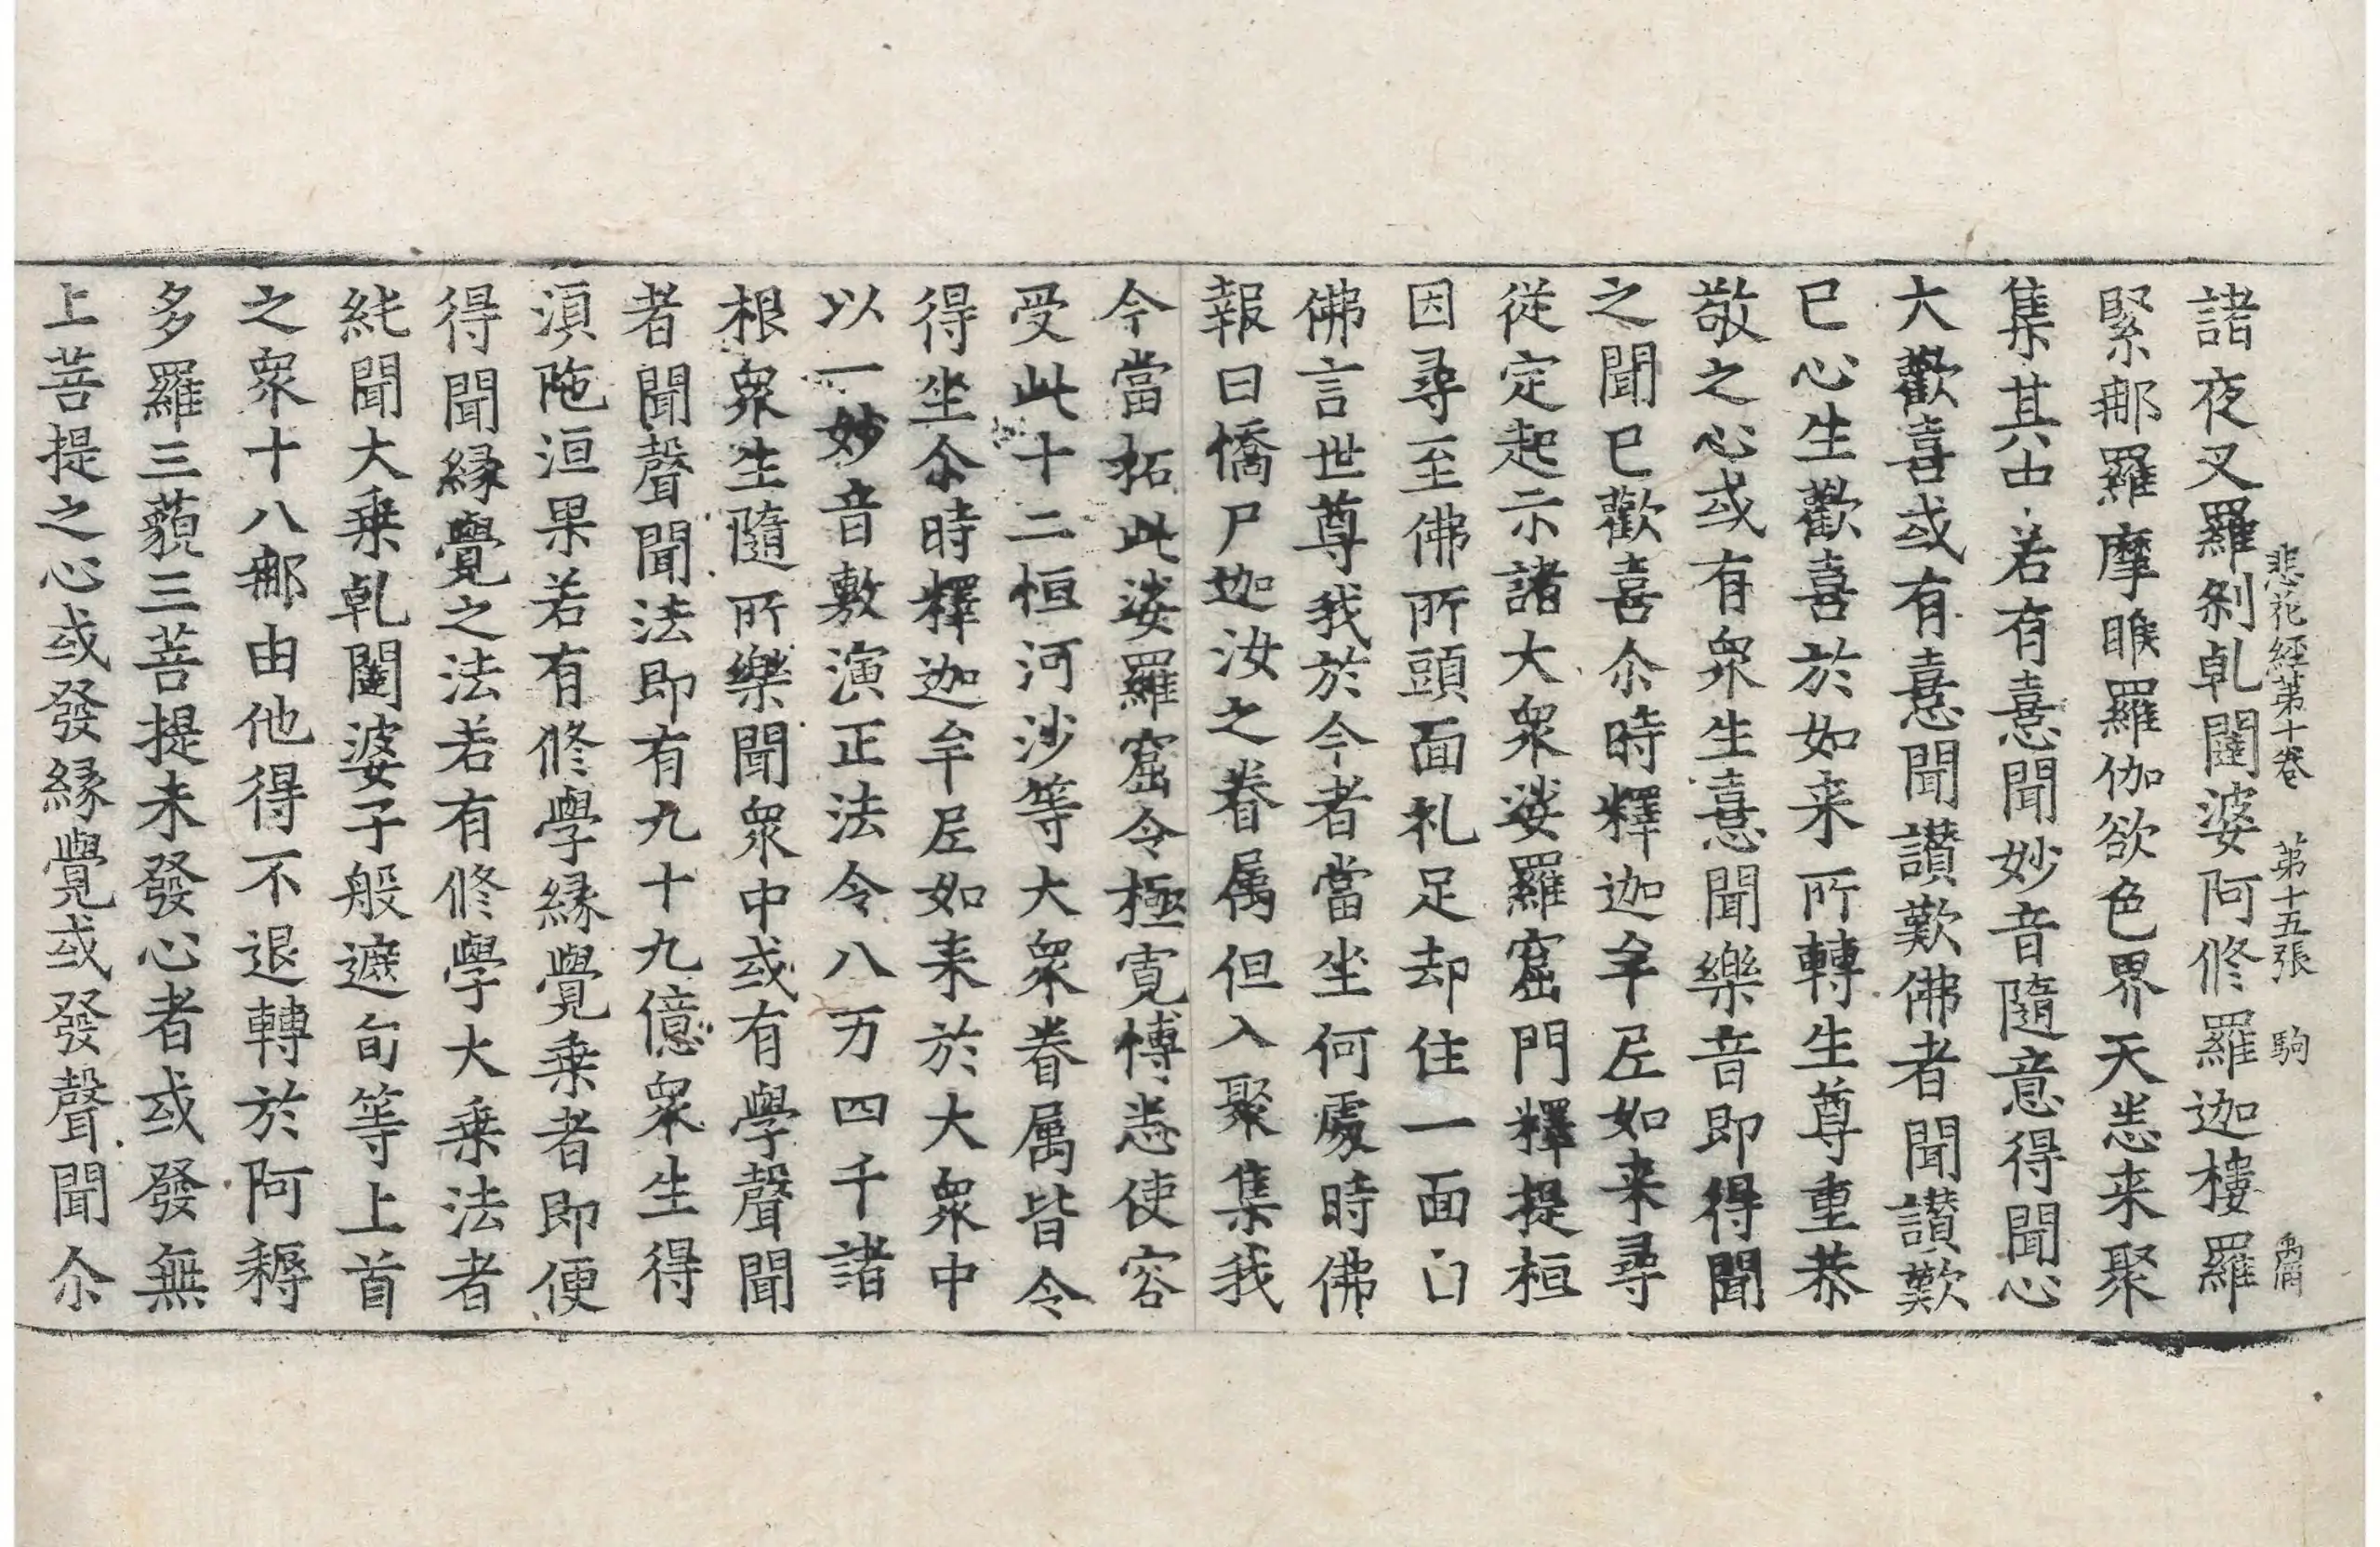 悲花經第十卷 第十五張 駒
諸夜叉羅刹乹闥婆阿修羅迦樓羅
緊那羅摩睺羅伽欲色界天悉来聚
集其中若有憙聞妙音隨意得聞心
大歡喜或有憙聞讃歎佛者聞讃歎
已心生歡喜於如来所轉生尊重恭
敬之心或有衆生憙聞樂音即得聞
之聞已歡喜尒時釋迦牟尼如来尋
従定起示諸大衆娑羅窟門釋提桓
因尋至佛所頭面礼足却住一面白
佛言世尊我於今者當坐何處時佛
報曰憍尸迦汝之眷属但入聚集我
今當拓此娑羅窟令極寛博悉使容
受此十二恒河沙等大衆眷属皆令
得坐尒時釋迦牟尼如来於大衆中
以一妙音敷演正法令八万四千諸
根衆生隨所樂聞衆中或有學聲聞
者聞聲聞法即有九十九億衆生得
湏陁洹果若有修學縁覺乗者即便
得聞縁覺之法若有修學大乗法者
純聞大乗乹闥婆子般遮旬等上首
之衆十八那由他得不退轉於阿耨
多羅三藐三菩提未發心者或發無
上菩提之心或發縁覺或發聲聞尒